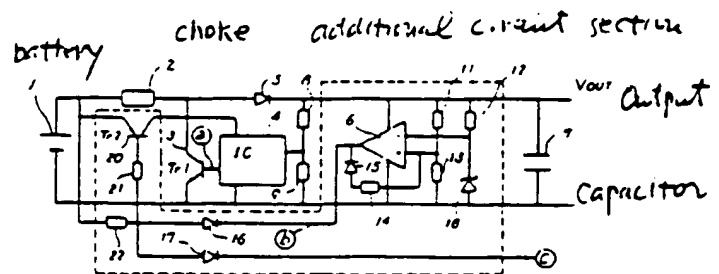 choke additional circuit section
battery
1
2
5
8
11
12
VOUT Output
4
6
Tr2
3
20
Tr1
a
IC
15
13
9
21
14
Capacitor
22
16
b
18
17
E